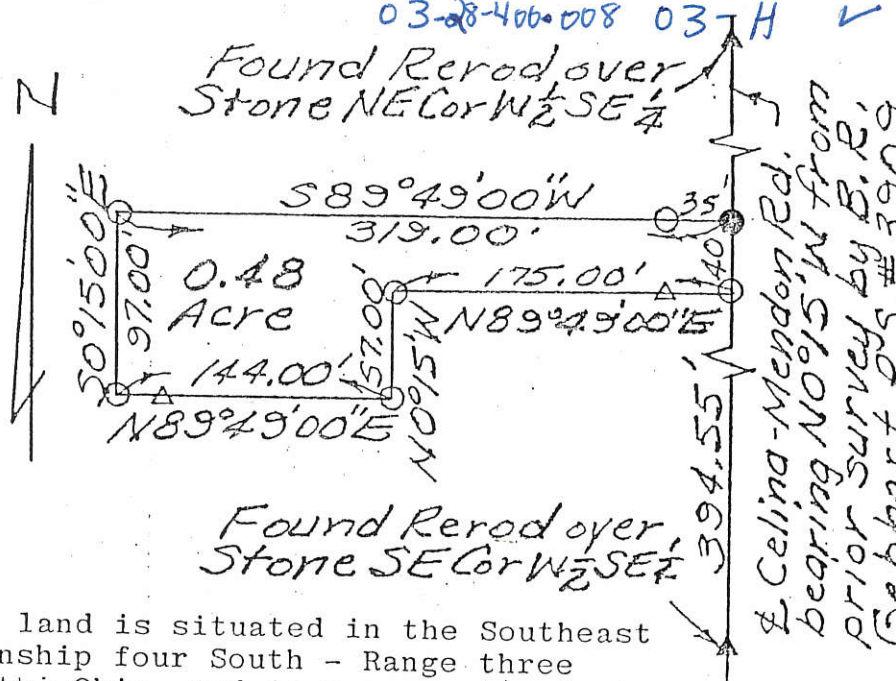 03-28-400.008 03-H ✓
N
Found Rerod over
Stone NE Cor W½ SE¼
S89°49'00"W
319.00'
35'
S0°15'00"E
97.00'
0.48
Acre
175.00'
40'
N89°49'00"E
57.00'
N0°15'W
144.00'
N89°49'00"E
394.55'
Found Rerod over
Stone SE Cor W½ SE¼
℄ Celina-Mendon Rd.
bearing N0°15'W from
prior survey by B.R.
land is situated in the Southeast
nship four South - Range three